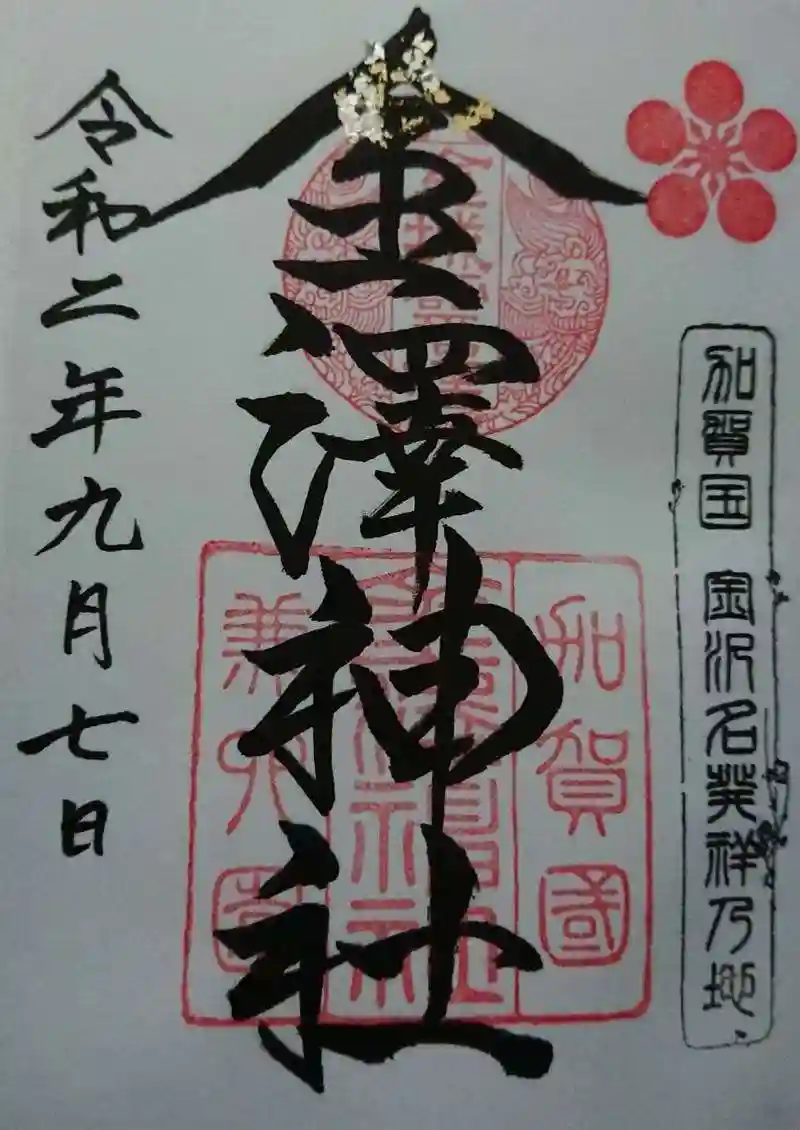 加賀国 金沢名発祥乃地
金澤神社
加賀國
金澤神社
兼六園
令和二年九月七日